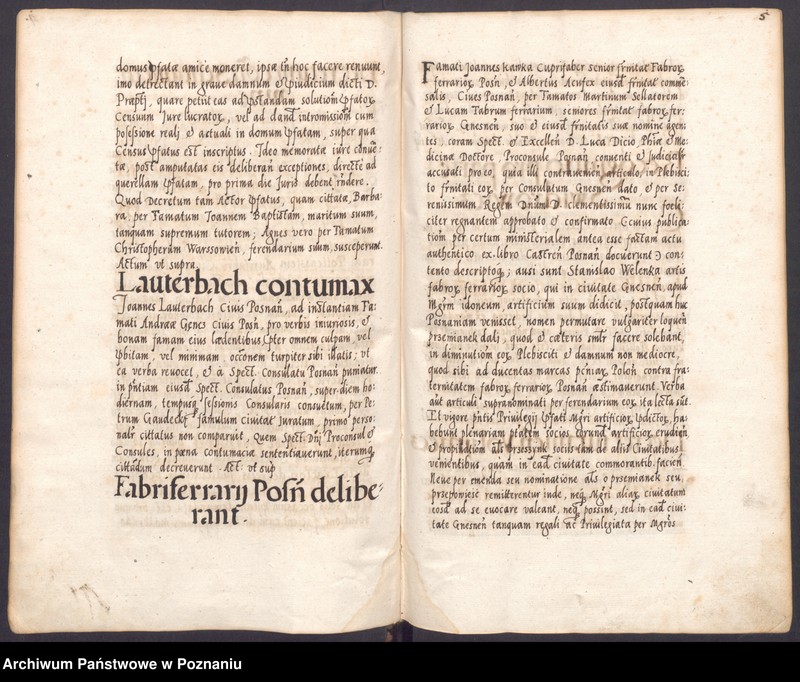 domus pfatæ amice moneret, ipsæ tñ hoc facere renuunt,
imo detrectant in grave damnum et piudicium dicti D.
Præptj, quare petijt eas ad pstandam solutiōm pfator
Censuum Jure lucrator, vel ad dand intromissiōm cum
possessione reali et actuali in domum pfatam, super qua
Census pfatus est inscriptus. Ideo memoratæ iure
post amputatas eis deliberan exceptiones, directe ad
querellam pfatam, pro prima die Juris debent rñdere.
Quod Decretum tam Actor pfatus, quam cittatæ, Barba-
ra, per Famatum Joannem Baptistam, maritum suum,
tanquam supremum tutorem; Agnes vero per Famatum
Christopherum Warssowień, ferendarium suum, susceperunt.
Actum vt supra.
Lauterbach contumax
Joannes Lauterbach Civis Posnań, ad instantiam Fa-
mati Andreæ Genes Civis Posń, pro verbis iniuriosis, et
bonam famam eius lædentibus, pter omnem culpam, vel
vel minimam, occōnem turpiter sibi illatis; vt
ea verba revocet, et à Spect. Consulatu Posnań puniatur
in pñtiam eiusd Spect. Consulatus Posnań, super diem ho-
diernam, tempusq sessionis Consularis consuetum, per Pe-
trum Gaudecky famulum civitat Juratum, primo perso-
nalr cittatus non comparuit, Quem Spect. Dnj Proconsul et
Consules, in pœna contumaciæ sententiauerunt, iterumq
cittandum decreverunt. Act. vt sup
Fabriferrarij Posń delibe-
rant.
5
Famati Joannes Kawka Cuprifaber senior frnitat Fabror
ferrarior Posń, et Albertus Acufex eiusd frnitat comme-
salis, Cives Posnań, per Famatos Martinum Sellatorem
et Lucam Fabrum ferrarium, seniores frnitat fabror fer-
rarior Gnesneń, suo et eiusd frnitatis suæ nomine agen-
tes, coram Spect. et Excelleń D. Luca Dicio, Phiæ et Me-
dicinæ Doctore, Proconsule Posnań conventi et Judicialr
accusati pro eo, quia illi contravenień articulo, in Plebisci-
to frnitati eor, per Consulatum Gnesneń dato et per Se-
renissimum Regem Dnum D. clementissimū nunc foeli-
citer regnantem approbato et confirmato. Cuius publica-
tiōm per certum ministerialem, antea esse factam actu
authentico ex libro Castreń Posnań docuerunt con-
tento descriptoq; ausi sunt Stanislao Welenka artis
fabror ferrarior socio, qui in civitate Gnesneń, apud
Mgrm idoneum, artificium suum didicit, postquam huc
Posnaniam venisset, nomen permutare vulgariter loqueń
przemianek dalj, quod et cæteris smlr facere solebant,
in diminutiōm eor Plebisciti et damnum non mediocre,
quod sibi ad ducentas marcas pcniar Poloń contra fra-
ternitatem fabror ferrarior Posnań æstimaverunt. Verba
aūt articuli supranominati per ferendarium eor ita lecta sūt.
Et vigore pñtis Privilegij pfatj Mgrj artificior pdictor, ha-
bebunt plenariam ptātem socios eorund artificior erudien
et als przezwisk socijs tam de alijs Civitatibus
venientibus, quam in ead civitate commorantib. facień
Neve per emenda seu nominatione als o przemianek seu
przepowiesc remitterentur inde, neq Mgrj aliar civitatum
eosd ad se evocare valeant, neq possint, sed in ead civi-
tate Gnesneń tanquam regali ac Privilegiata per Mgrōs
Archiwum Państwowe w Poznaniu